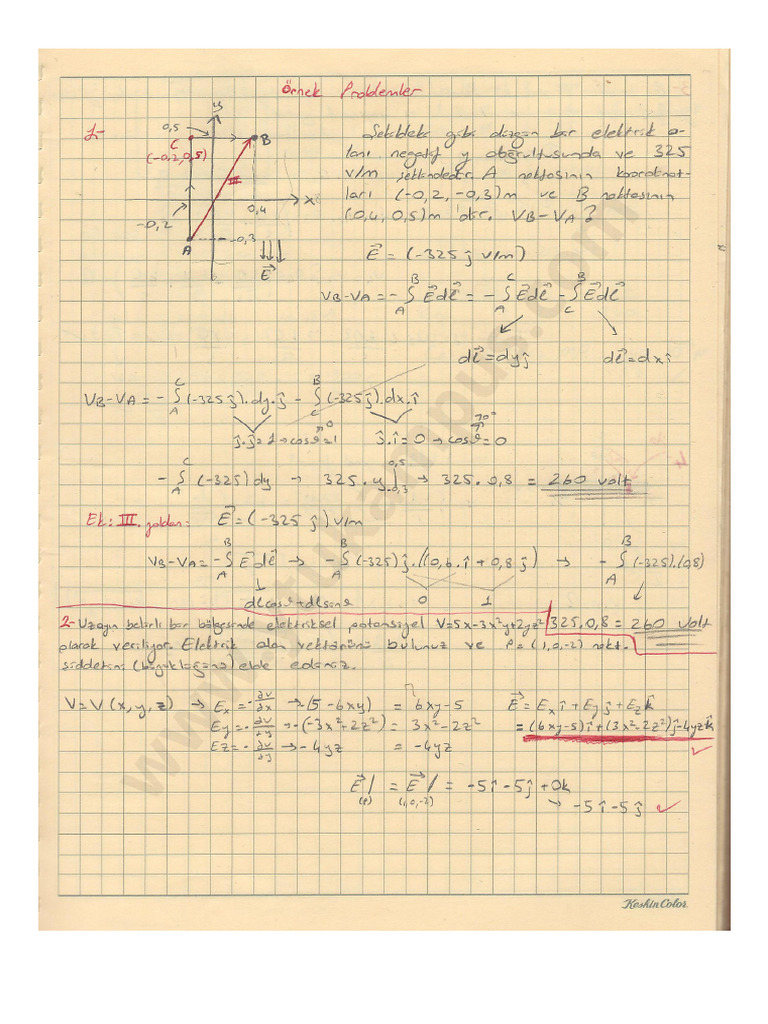 Örnek Problemler
1-
Şekildeki gibi düzgün bir elektrik a-
lanı negatif y doğrultusunda ve 325
v/m şeklindedir. A noktasının koordinat-
ları (-0,2, -0,3)m ve B noktasının
(0,4, 0,5)m 'dir. VB-VA?
y
0,5
C
(-0,2,0,5)
B
III
x
0,4
-0,2
-0,3
A
E⃗
E⃗ = (-325 ĵ v/m)
VB-VA = -∫_A^B E⃗dℓ⃗ = -∫_A^C E⃗dℓ⃗ - ∫_C^B E⃗dℓ⃗
dℓ⃗=dyĵ dℓ⃗=dxî
VB-VA = -∫_A^C (-325ĵ).dy.ĵ - ∫_C^B (-325ĵ).dx.î
ĵ.ĵ=1→cosθ=1 ĵ.î=0→cosθ=0
0 90°
-∫_A^C (-325)dy → 325.y|_-0,3^0,5 → 325.0,8 = 260 volt
Ek: III. yoldan: E⃗=(-325 ĵ)v/m
VB-VA=-∫_A^B E⃗dℓ⃗ → -∫_A^B (-325)ĵ.(0,6.î+0,8ĵ) → -∫_A^B (-325).(0,8)
dℓcosθ+dℓsinθ 0 1
325.0,8 = 260 volt
2- Uzayın belirli bir bölgesinde elektriksel potansiyel V=5x-3x²y+2yz²
olarak veriliyor. Elektrik alan vektörünü bulunuz ve P=(1,0,-2) nokt.
şiddetini (büyüklüğünü) elde ediniz.
V=V(x,y,z) → Ex=-∂V/∂x →-(5-6xy) = 6xy-5 E⃗=Exî+Eyĵ+Ezk̂
Ey=-∂V/∂y →-(-3x²+2z²) = 3x²-2z² =(6xy-5)î+(3x²-2z²)ĵ-4yzk̂
Ez=-∂V/∂y →-4yz = -4yz
E⃗|(P) = E⃗|(1,0,-2) = -5î-5ĵ+0k
→ -5î-5ĵ
Keskin Color